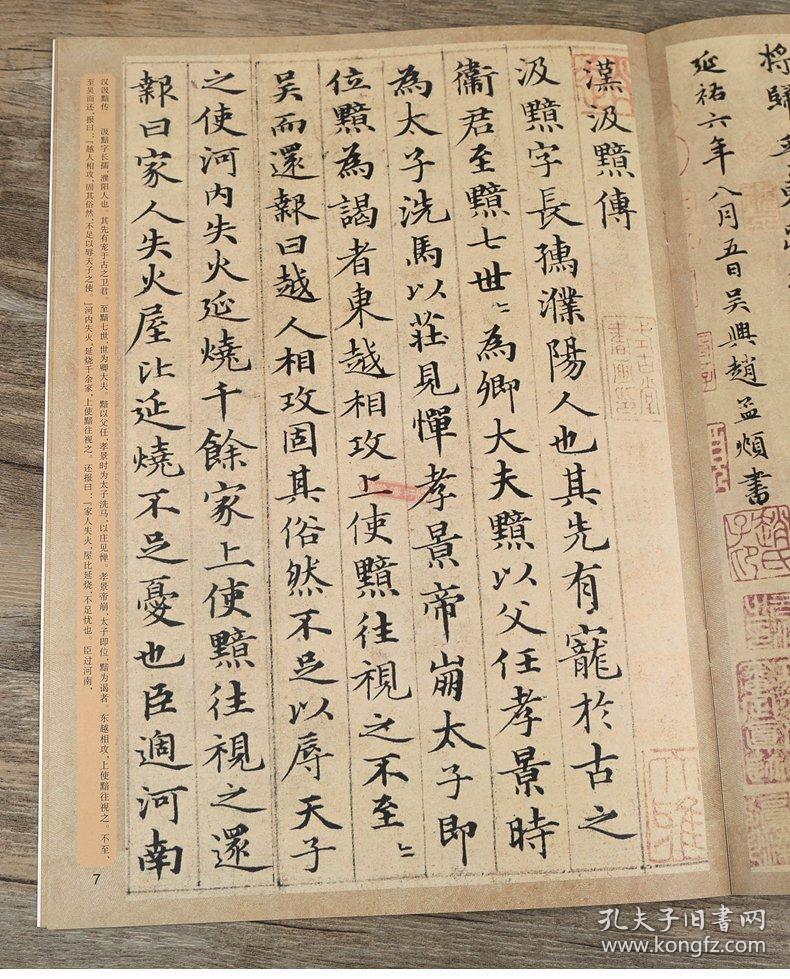 将歸
延祐六年八月五日吴興趙孟頫書
漢汲黯傳
汲黯字長孺濮陽人也其先有寵於古之
衛君至黯七世〻為卿大夫黯以父任孝景時
為太子洗馬以莊見憚孝景帝崩太子即
位黯為謁者東越相攻上使黯往視之不至〻
吴而還報曰越人相攻固其俗然不足以辱天子
之使河内失火延燒千餘家上使黯往視之還
報曰家人失火屋比延燒不足憂也臣過河南
汉汲黯传 汲黯字长孺,濮阳人也 其先有宠于古之卫君。至黯七世,世为卿大夫 黯以父任,孝景时为太子洗马,以庄见惮。孝景帝崩,太子即位,黯为谒者。东越相攻,上使黯往视之 不至、
至吴而还,报曰:「越人相攻,固其俗然,不足以辱天子之使。」河内失火,延烧千余家,上使黯往视之。还报曰:「家人失火,屋比延烧,不足忧也。臣过河南,
7
孔夫子旧书网
www.kongfz.com